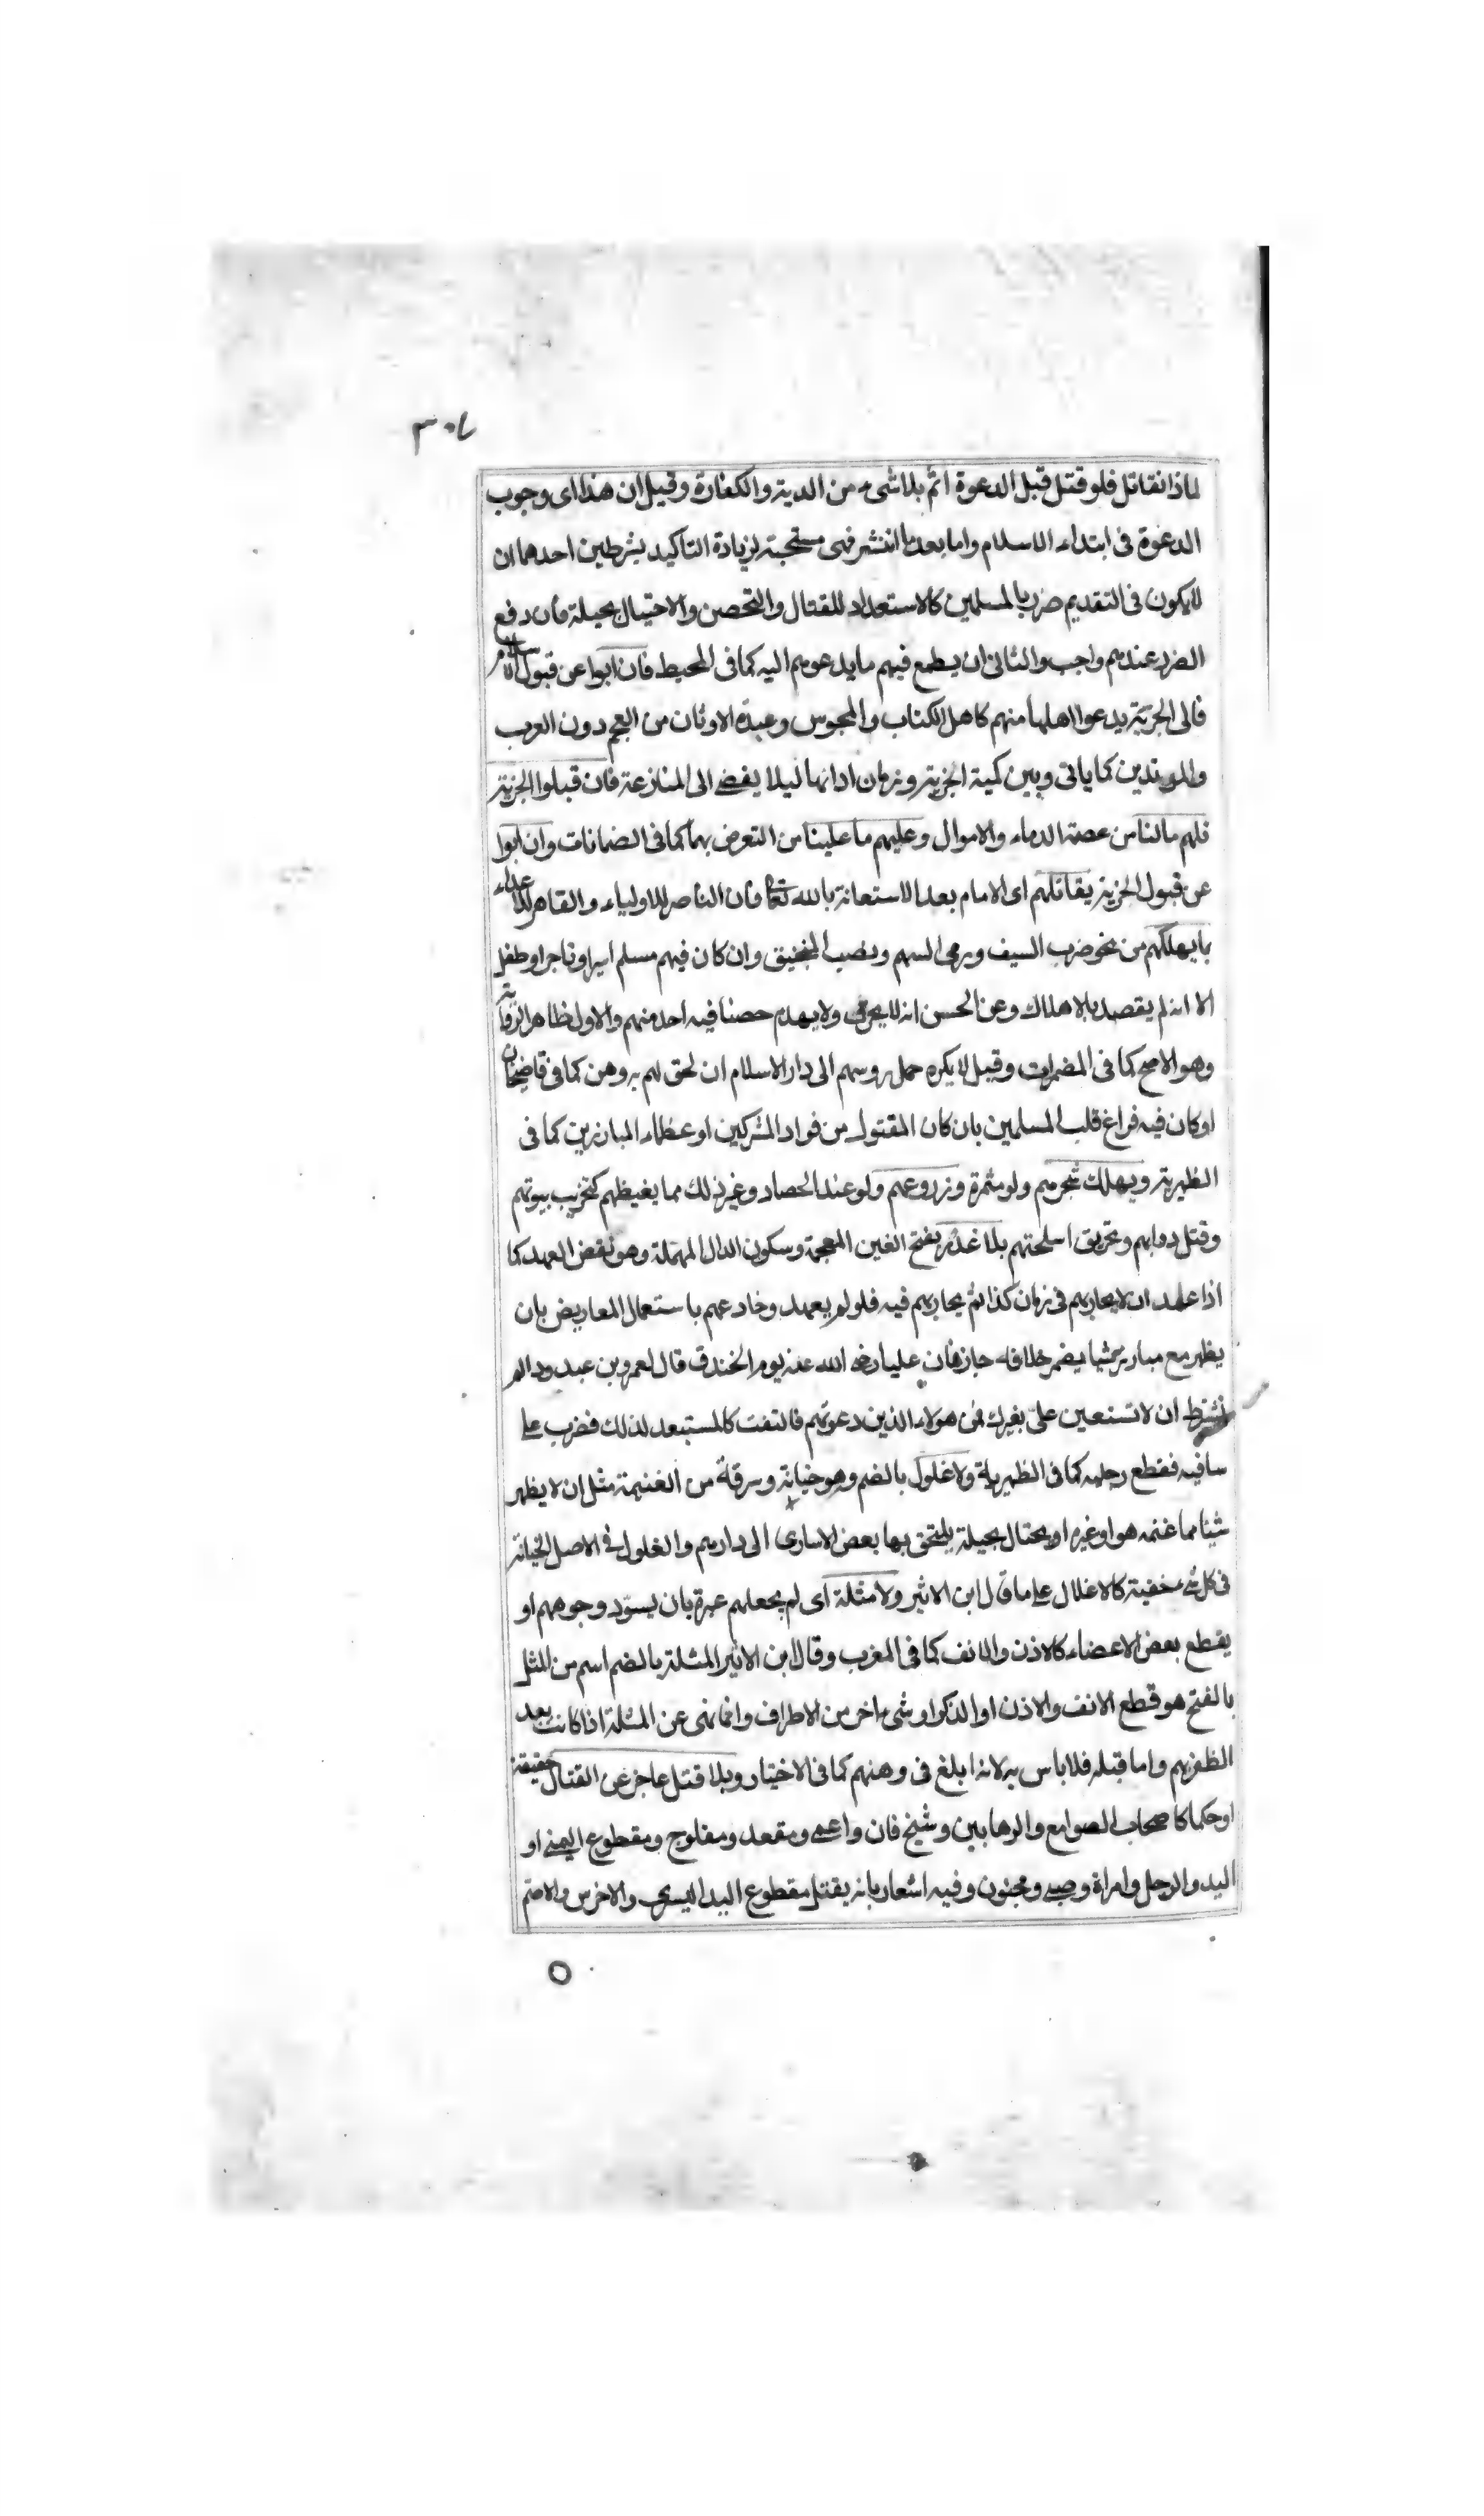 ٣٠٧
لماذا نقاتل فلو قتل قبل الدعوة اثم بلا شىء من الدية والكفارة وقيل ان هذا اى وجوب
الدعوة فى ابتداء الاسلام واما بعد ما انتشر فهى مستحبة لزيادة التاكيد بشرطين احدهما ان
لا يكون فى التقديم ضرر بالمسلمين كالاستعداد للقتال والتحصن والاحتيال بحيلة فان دفع
الضرر عندهم واجب والثانى ان يطمع فيهم ما يدعوهم اليه كما فى المحيط فان ابوا عن قبول الاسلام
فالى الجزية يدعوا اهلها منهم كاهل الكتاب والمجوس وعبدة الاوثان من العجم دون العرب
والمرتدين كما ياتى وبين كمية الجزية وزمان ادائها ليلا يفضى الى المنازعة فان قبلوا الجزية
فلهم ما لنا من عصمة الدماء والاموال وعليهم ما علينا من التعرض بهما كما فى الضمانات وان ابوا
عن قبول الجزية يقاتلهم اى الامام بعد الاستعانة بالله تعالى فان الناصر للاولياء والقاهر للاعداء
بما يهلكهم من نحو ضرب السيف ورمى السهم ونصب المنجنيق وان كان فيهم مسلم اسير او تاجر او طفل
الا انه لم يقصد بالاهلاك وعن الحسن انه لا يحرق ولا يهدم حصنا فيه احد منهم والاول ظاهر الرواية
وهو الاصح كما فى المضمرات وقيل لا يكره حمل روسهم الى دار الاسلام ان لحق لهم به وهن كما فى قاضيخان
او كان فيه فراغ قلب المسلمين بان كان المقتول من قواد المشركين او عظماء المبارزين كما فى
الظهيرية ويهلك شجرهم ولو مثمرة وزروعهم ولو عند الحصاد وغير ذلك مما يغيظهم كتخريب بيوتهم
وقتل دوابهم وتحريق اسلحتهم بلا غدر بفتح الغين المعجمة وسكون الدال المهملة وهو نقض العهد كما
اذا عاهد ان لا يحاربهم فى زمان كذا ثم يحاربهم فيه فلو لم يعهد وخادعهم باستعمال المعاريض بان
يظهر مع مبارز شيئا يضمر خلافه جاز فان عليا رضى الله عنه يوم الخندق قال لعمرو بن عبد ود الم
نشترط ان لا تستعين على بغيرك فمن هولاء الذين دعوتهم فالتفت كالمستبعد لذلك فضرب على
ساقيه فقطع رجليه كما فى الظهيرية ولا غلول بالضم وهو خيانة وسرقة من الغنيمة مثل ان لا يظهر
شيئا مما غنمه هو او غيره او يحتال بحيلة يلتحق بها بعض الاسارى الى دارهم والغلول فى الاصل الخيانة
فى كل شىء خفية كالاغلال على ما قال ابن الاثير ولا مثلة اى لم يجعلهم عبرة بان يسود وجوههم او
يقطع بعض الاعضاء كالاذن والانف كما فى المغرب وقال ابن الاثير المثلة بالضم اسم من المثل
بالفتح هو قطع الانف والاذن او الذكر او شىء اخر من الاطراف وانما نهى عن المثلة اذا كانت بعد
الظفر بهم واما قبله فلا باس به لانه ابلغ فى وهنهم كما فى الاختيار وبلا قتل عاجز عن القتال حقيقة
او حكما كاصحاب الصوامع والرهابين وشيخ فان واعمى ومقعد ومفلوج ومقطوع اليمنى او
اليد والرجل وامراة وصبى ومجنون وفيه اشعار بانه يقتل مقطوع اليد اليسرى والاخرس والاصم